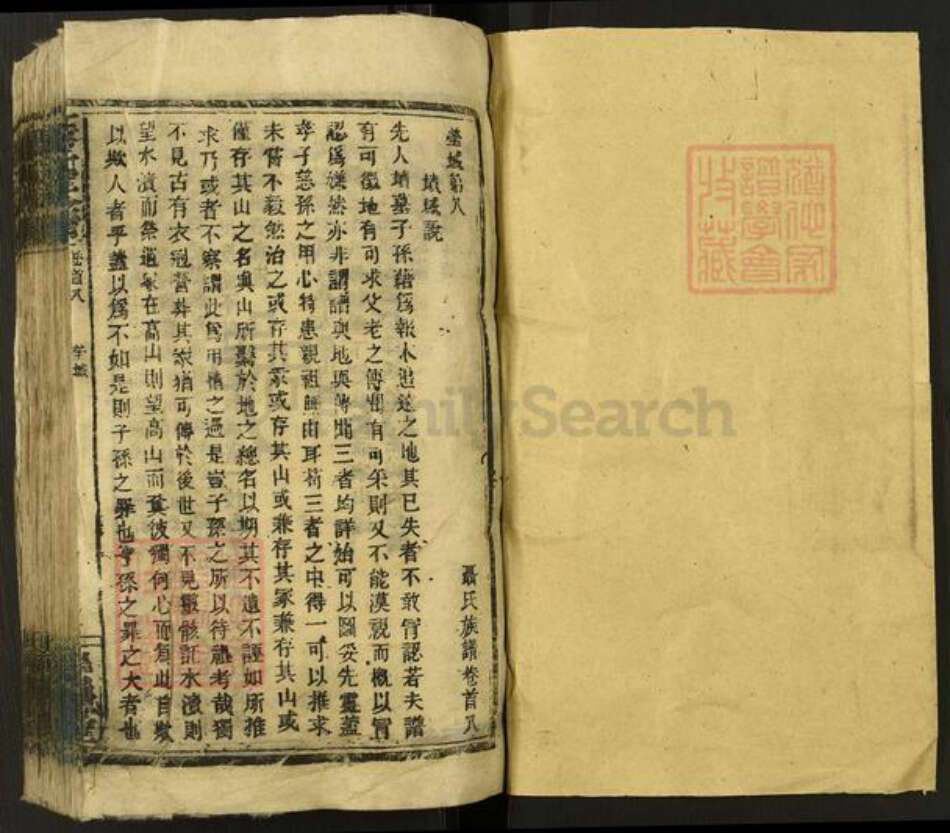 塋域第八 聶氏族譜卷首八
墳域說
先人墳墓子孫藉爲報本追遠之地其已失者不敢冐認若夫譜
有可徵地有可求父老之傳聞有可采則又不能漠視而槪以冐
認爲嫌然亦非謂譜與地與傳聞三者均詳始可以圖妥先靈蓋
孝子慈孫之用心特患親祖無由耳苟三者之中得一可以推求
未嘗不毅然治之或存其冡或存其山或兼存其冢兼存其山或
僅存其山之名與山所繫於地之總名以期其不遺不誣如所推
求乃或者不察謂此爲用情之過是豈子孫之所以待祖考哉獨
不見古有衣冠營葬其冡猶可傳於後世又不見骸託水濱則
望水濱而祭過冡在高山則望高山而奠彼獨何心而爲此自欺
以欺人者乎蓋以爲不如是則子孫之罪也子孫之罪之大者也
卷首八
塋域
FamilySearch
譜學會
收藏